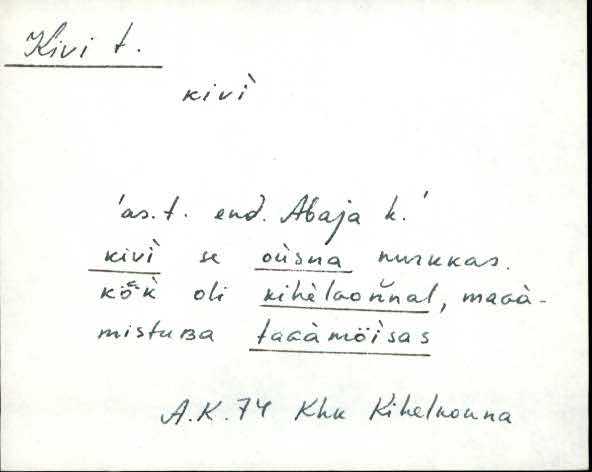 Kivi t.
kivì
'as. t. end. Abaja k.'
kivì se oùsna nurkkas.
köᵋk̀ oli kihèlᴋoñnal, maɢà-
mistuʙa taɢàmöìsas
A.K. 74 Khk Kihelkonna